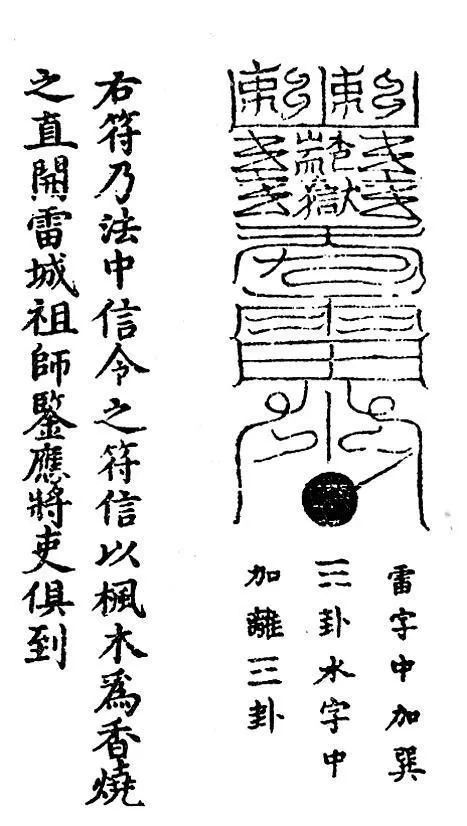 勅勅
雷字中加巽
☴卦水字中
加離☲卦
右符乃法中信令之符信以楓木爲香燒
之直開雷城祖師鑒應將吏俱到